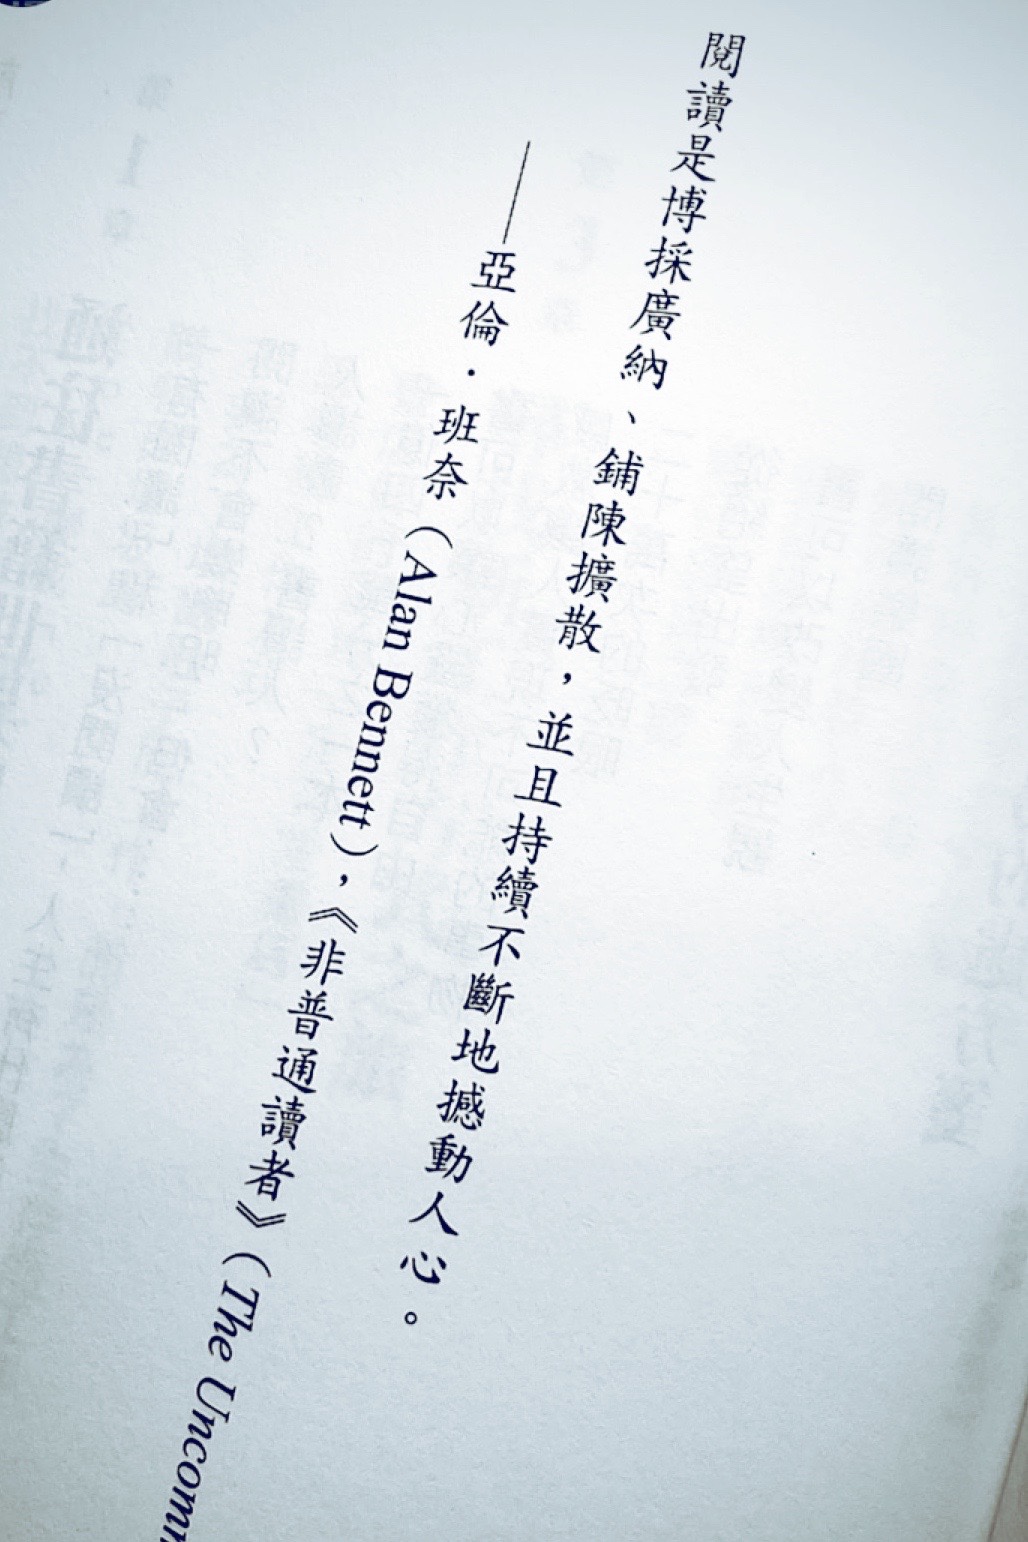 閱讀是博採廣納、鋪陳擴散，並且持續不斷地撼動人心。
——亞倫．班奈（Alan Bennett），《非普通讀者》（The Uncomm